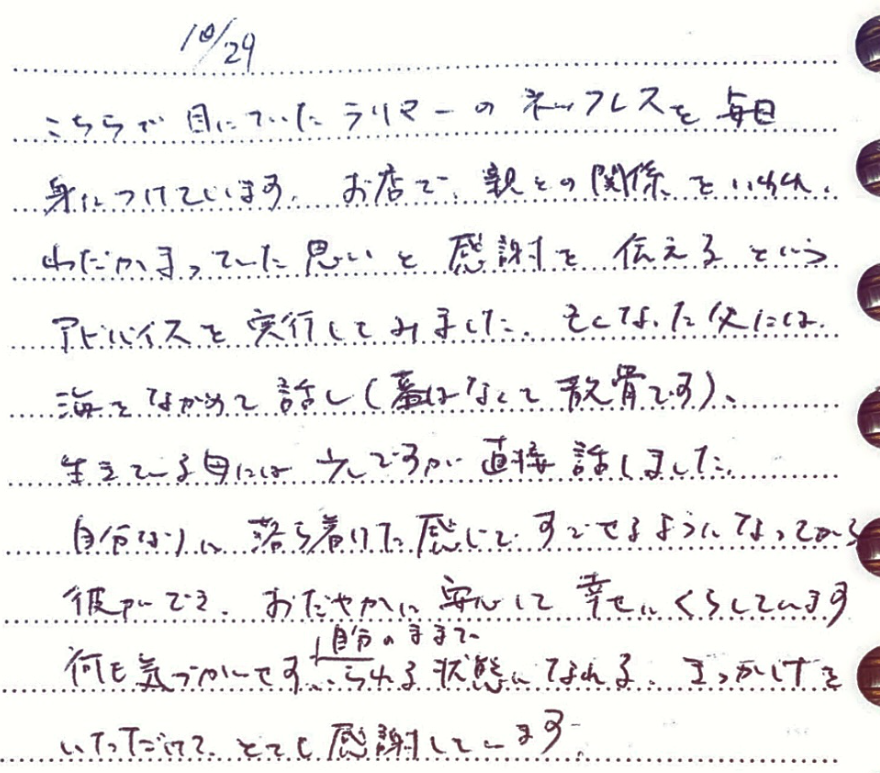 10/29
こちらで目にていたラリマーのネックレスを毎日
身につけています。お店で、親との関係をいわれ、
わだかまっていた思いと感謝を伝えるという
アドバイスを実行してみました。亡くなった父には
海をながめて話し(墓はなくて散骨です)、
生きている母には少しですが直接話しました。
自分なりに落ち着けた感じですごせるようになってから
彼ができ、おだやかに安心して幸せにくらしています
自分のままで
何も気づかいせずいられる状態になれる、きっかけを
いただけて、とても感謝しています。